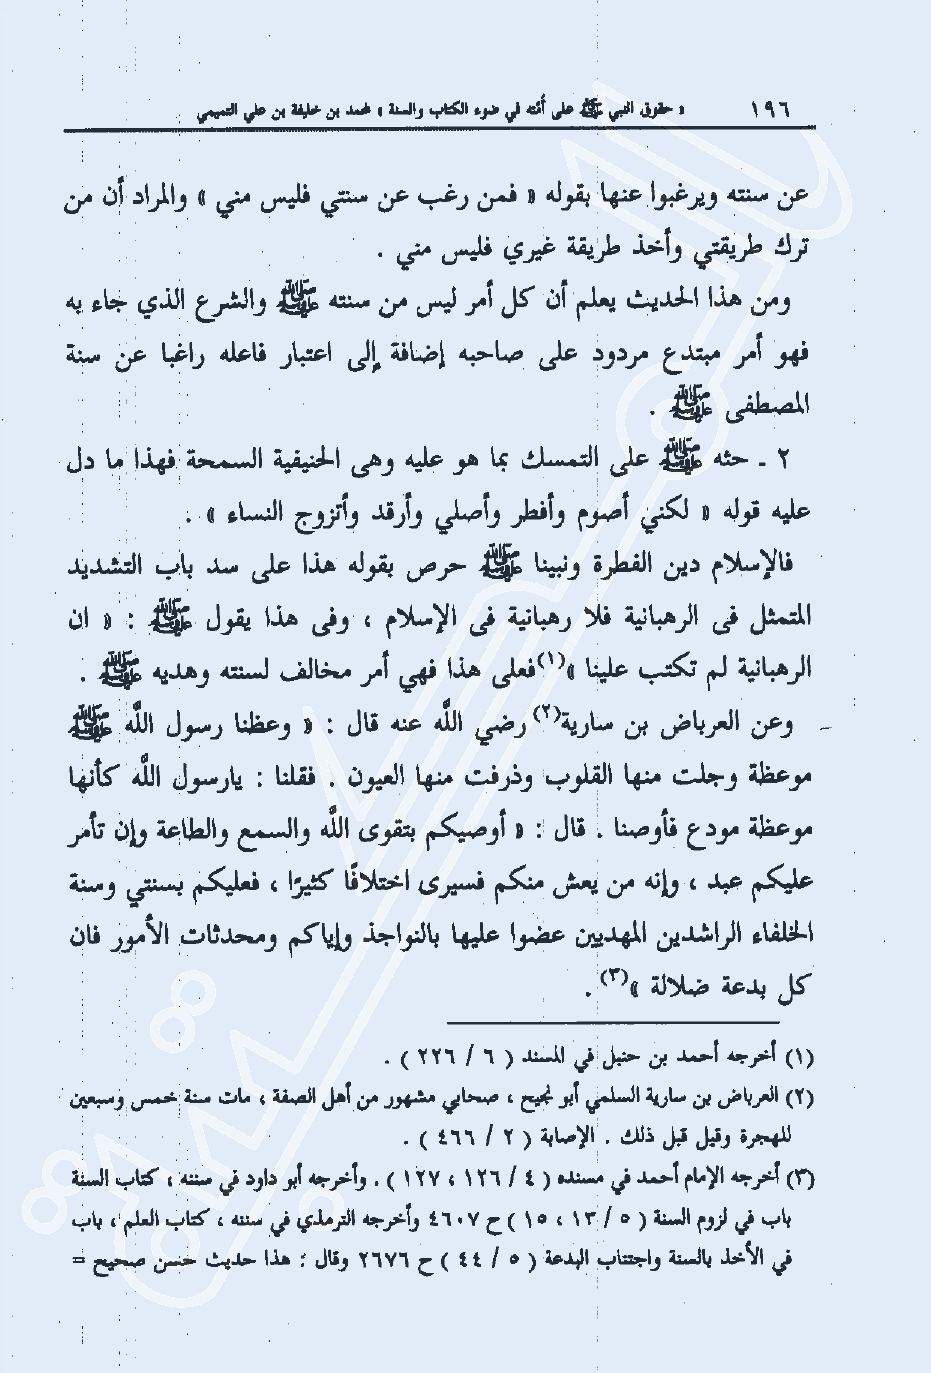 ١٩٦ « حقوق النبي ﷺ على أمته في ضوء الكتاب والسنة » محمد بن خليفة بن علي التميمي
عن سنته ويرغبوا عنها بقوله « فمن رغب عن سنتي فليس مني » والمراد أن من
ترك طريقتي وأخذ طريقة غيري فليس مني .
ومن هذا الحديث يعلم أن كل أمر ليس من سنته ﷺ والشرع الذي جاء به
فهو أمر مبتدع مردود على صاحبه إضافة إلى اعتبار فاعله راغبا عن سنة
المصطفى ﷺ .
٢ ـ حثه ﷺ على التمسك بما هو عليه وهى الحنيفية السمحة فهذا ما دل
عليه قوله « لكني أصوم وأفطر وأصلي وأرقد وأتزوج النساء » .
فالإسلام دين الفطرة ونبينا ﷺ حرص بقوله هذا على سد باب التشديد
المتمثل فى الرهبانية فلا رهبانية فى الإسلام ، وفى هذا يقول ﷺ : « ان
الرهبانية لم تكتب علينا »(١)فعلى هذا فهي أمر مخالف لسنته وهديه ﷺ .
وعن العرباض بن سارية(٢) رضي اللَّه عنه قال : « وعظنا رسول اللَّه ﷺ
موعظة وجلت منها القلوب وذرفت منها العيون . فقلنا : يارسول اللَّه كأنها
موعظة مودع فأوصنا . قال : « أوصيكم بتقوى اللَّه والسمع والطاعة وإن تأمر
عليكم عبد ، وإنه من يعش منكم فسيرى اختلافًا كثيرًا ، فعليكم بسنتي وسنة
الخلفاء الراشدين المهديين عضوا عليها بالنواجذ وإياكم ومحدثات الأمور فان
كل بدعة ضلالة »(٣) .
(١) أخرجه أحمد بن حنبل في المسند ( ٦ / ٢٢٦ ) .
(٢) العرباض بن سارية السلمي أبو نجيح ، صحابي مشهور من أهل الصفة ، مات سنة خمس وسبعين
للهجرة وقيل قبل ذلك . الإصابة ( ٢ / ٤٦٦ ) .
(٣) أخرجه الإمام أحمد في مسنده ( ٤ / ١٢٦ ، ١٢٧ ) . وأخرجه أبو داود في سننه ، كتاب السنة
باب في لزوم السنة ( ٥ / ١٣ ، ١٥ ) ح ٤٦٠٧ وأخرجه الترمذي في سننه ، كتاب العلم ، باب
في الأخذ بالسنة واجتناب البدعة ( ٥ / ٤٤ ) ح ٢٦٧٦ وقال : هذا حديث حسن صحيح =